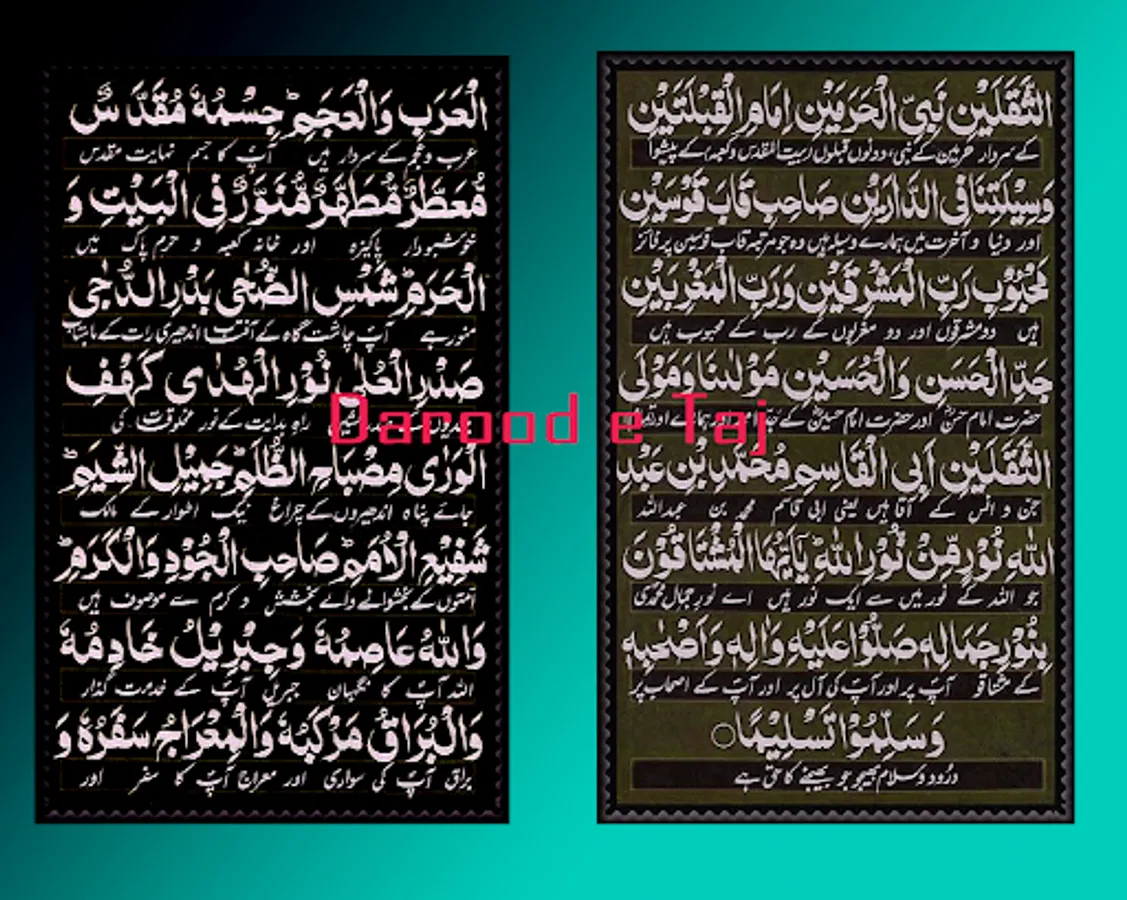 Darood e Taj
الْعَرَبِ وَالْعَجَمِ جِسْمُهٗ مُقَدَّسٌ
عرب وعجم کے سردار ہیں آپؐ کا جسم نہایت مقدس
مُّعَطَّرٌ مُّطَهَّرٌ مُّنَوَّرٌ فِی الْبَیْتِ وَ
خوشبودار پاکیزہ اور خانہ کعبہ و حرم پاک میں
الْحَرَمِ شَمْسِ الضُّحٰی بَدْرِ الدُّجٰی
منور ہے آپؐ چاشت گاہ کے آفتاب اندھیری رات کے ماہتاب
صَدْرِ الْعُلٰی نُوْرِ الْهُدٰی کَهْفِ
راہِ ہدایت کے نور مخلوقات کی
الْوَرٰی مِصْبَاحِ الظُّلَمِ جَمِیْلِ الشِّیَمِ
جائے پناہ اندھیروں کے چراغ نیک اطوار کے مالک
شَفِیْعِ الْاُمَمِ صَاحِبِ الْجُوْدِ وَالْکَرَمِ
امتوں کے بخشوانے والے بخشش و کرم سے موصوف ہیں
وَاللّٰهُ عَاصِمُهٗ وَجِبْرِیْلُ خَادِمُهٗ
اللہ آپؐ کا نگہبان جبریل آپؐ کے خدمت گذار
وَالْبُرَاقُ مَرْکَبُهٗ وَالْمِعْرَاجُ سَفَرُهٗ وَ
براق آپؐ کی سواری اور معراج آپؐ کا سفر اور
الثَّقَلَیْنِ نَبِیِّ الْحَرَمَیْنِ اِمَامِ الْقِبْلَتَیْنِ
کے سردار حرمین کے نبی، دونوں قبلوں (بیت المقدس وکعبہ) کے پیشوا
وَسِیْلَتِنَا فِی الدَّارَیْنِ صَاحِبِ قَابَ قَوْسَیْنِ
اور دنیا و آخرت میں ہمارے وسیلہ ہیں وہ جو مرتبہ قاب قوسین پر فائز
مَحْبُوْبِ رَبِّ الْمَشْرِقَیْنِ وَرَبِّ الْمَغْرِبَیْنِ
ہیں دو مشرقوں اور دو مغربوں کے رب کے محبوب ہیں
جَدِّ الْحَسَنِ وَالْحُسَیْنِ مَوْلٰنَا وَمَوْلَی
حضرت امام حسنؓ اور حضرت امام حسینؓ کے جد
الثَّقَلَیْنِ اَبِی الْقَاسِمِ مُحَمَّدِ بْنِ عَبْدِ
جن و انس کے آقا ہیں یعنی ابی قاسم محمد بن عبداللہ
اللّٰهِ نُوْرٍ مِّنْ نُّوْرِ اللّٰهِ یٰۤاَیُّهَا الْمُشْتَاقُوْنَ
جو اللہ کے نور میں سے ایک نور ہیں اے نورِ جمالِ محمدی
بِنُوْرِ جَمَالِهٖ صَلُّوْا عَلَیْهِ وَاٰلِهٖ وَاَصْحٰبِهٖ
کے مشتاقو آپؐ پر اور آپؐ کی آل پر اور آپؐ کے اصحاب پر
وَسَلِّمُوْا تَسْلِیْمًا○
درود وسلام بھیجو جو بھیجنے کا حق ہے